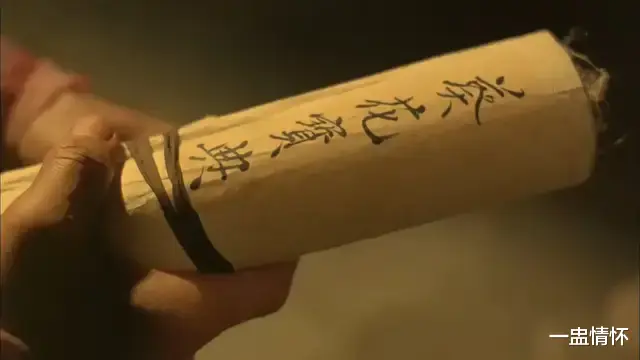 葵花寶典
一蛊情怀